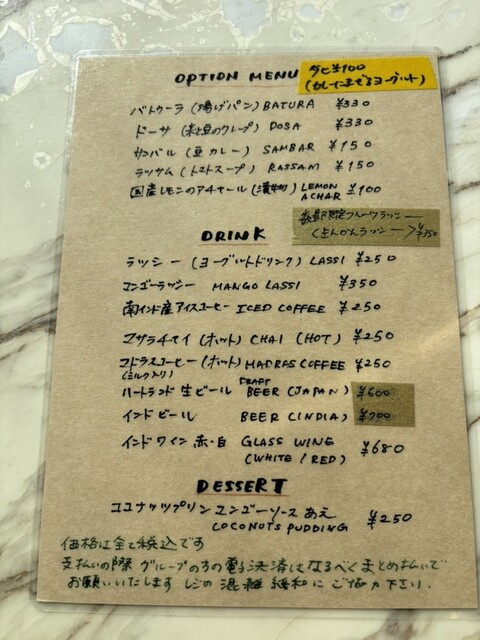 OPTION MENU
ダヒ ¥100
(カレーにまぜるヨーグルト)
バトゥーラ (揚げパン) BATURA ¥330
ドーサ (米と豆のクレープ) DOSA ¥330
サンバル (豆カレー) SAMBAR ¥150
ラッサム (トマトスープ) RASSAM ¥150
国産レモンのアチャール (漬物) LEMON ACHAR ¥100
数量限定フルーツラッシー
(きんかんラッシー) ¥350
DRINK
ラッシー (ヨーグルトドリンク) LASSI ¥250
マンゴーラッシー MANGO LASSI ¥350
南インド産アイスコーヒー ICED COFFEE ¥250
マサラチャイ (ホット) CHAI (HOT) ¥250
マドラスコーヒー (ホット) MADRAS COFFEE ¥250
(ミルク入り)
ハートランド生ビール DRAFT BEER (JAPAN) ¥600
インドビール BEER (INDIA) ¥700
インドワイン 赤・白 GLASS WINE ¥680
(WHITE / RED)
DESSERT
ココナッツプリン マンゴーソースあえ
COCONUTS PUDDING ¥250
価格は全て税込です
支払いの際 グループの方の電子決済はなるべくまとめ払いで
お願いいたします レジの混雑緩和にご協力下さい.